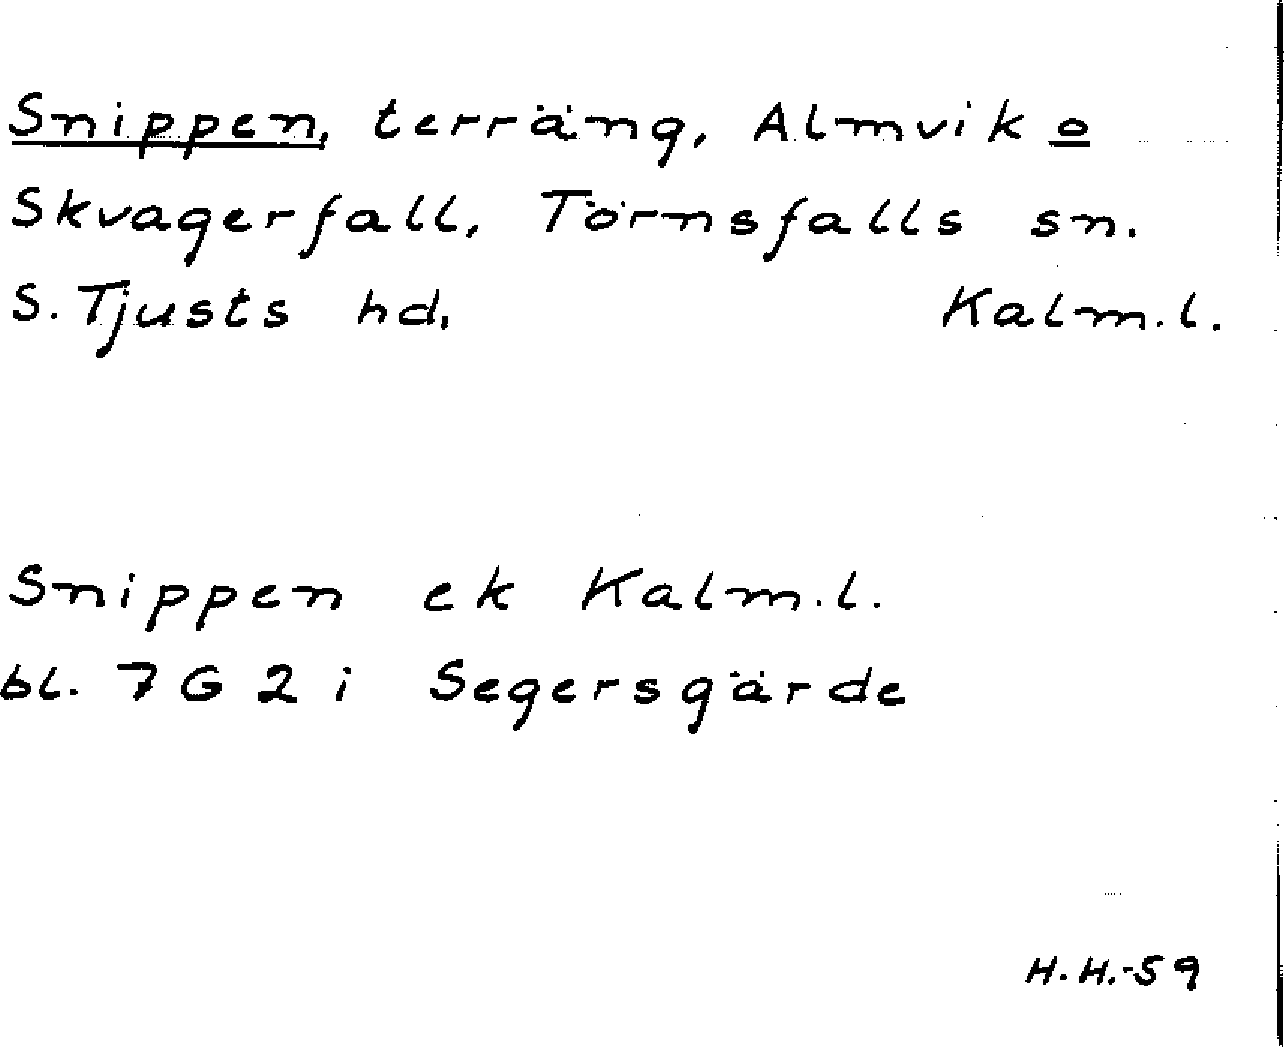 Snippen, terräng, Almvik o
Skvagerfall, Törnsfalls sn.
S. Tjusts hd. Kalm.l.
Snippen ek Kalm.l.
bl. 7 G 2 i Segersgärde
H.H.-59